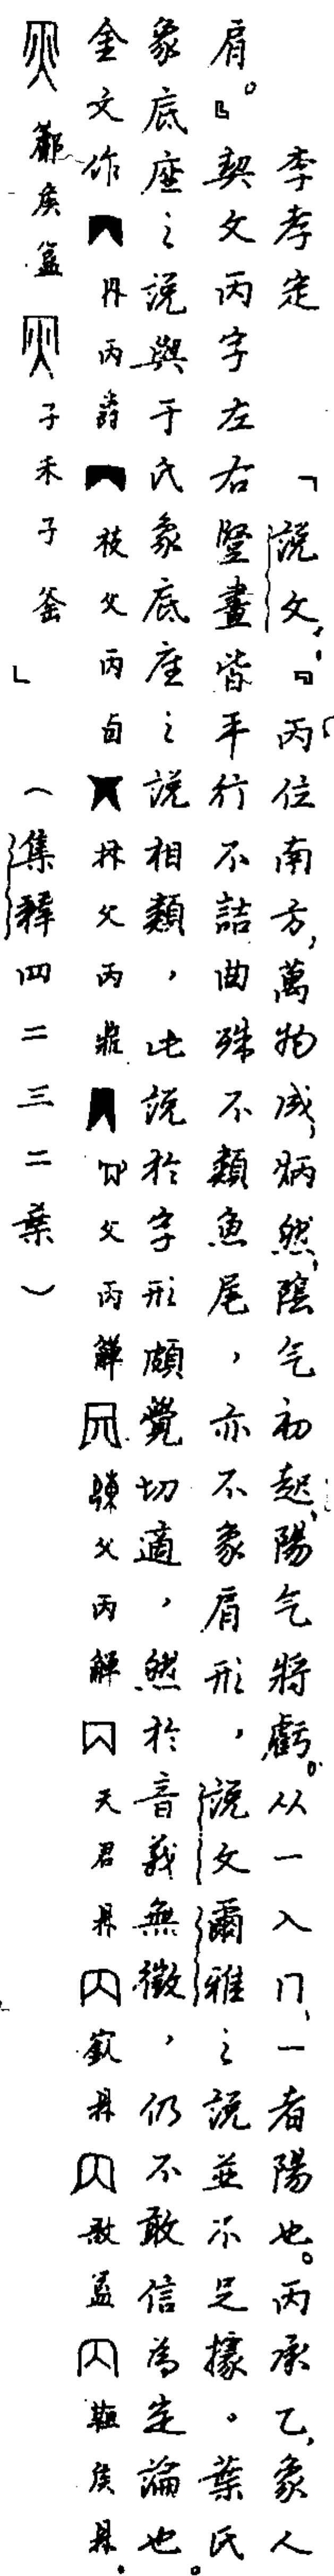 李孝定「說文:『丙位南方,萬物成,炳然,陰气初起,陽气將虧。从一入冂,一者陽也。丙承乙,象人
肩。』契文丙字左右豎畫皆平行不詰曲殊不類魚尾,亦不象肩形,說文爾雅之說並不足據。葉氏
象底座之說與于氏象底座之說相類,此說於字形頗覺切適,然於音義無徵,仍不敢信為定論也。
金文作 丹丙 枝父丙卣 父丙 父丙觶 父丙觶 天君鼎 鼎 敔蓋 侯鼎
侯簋 子禾子釜」(集釋四二三二葉)